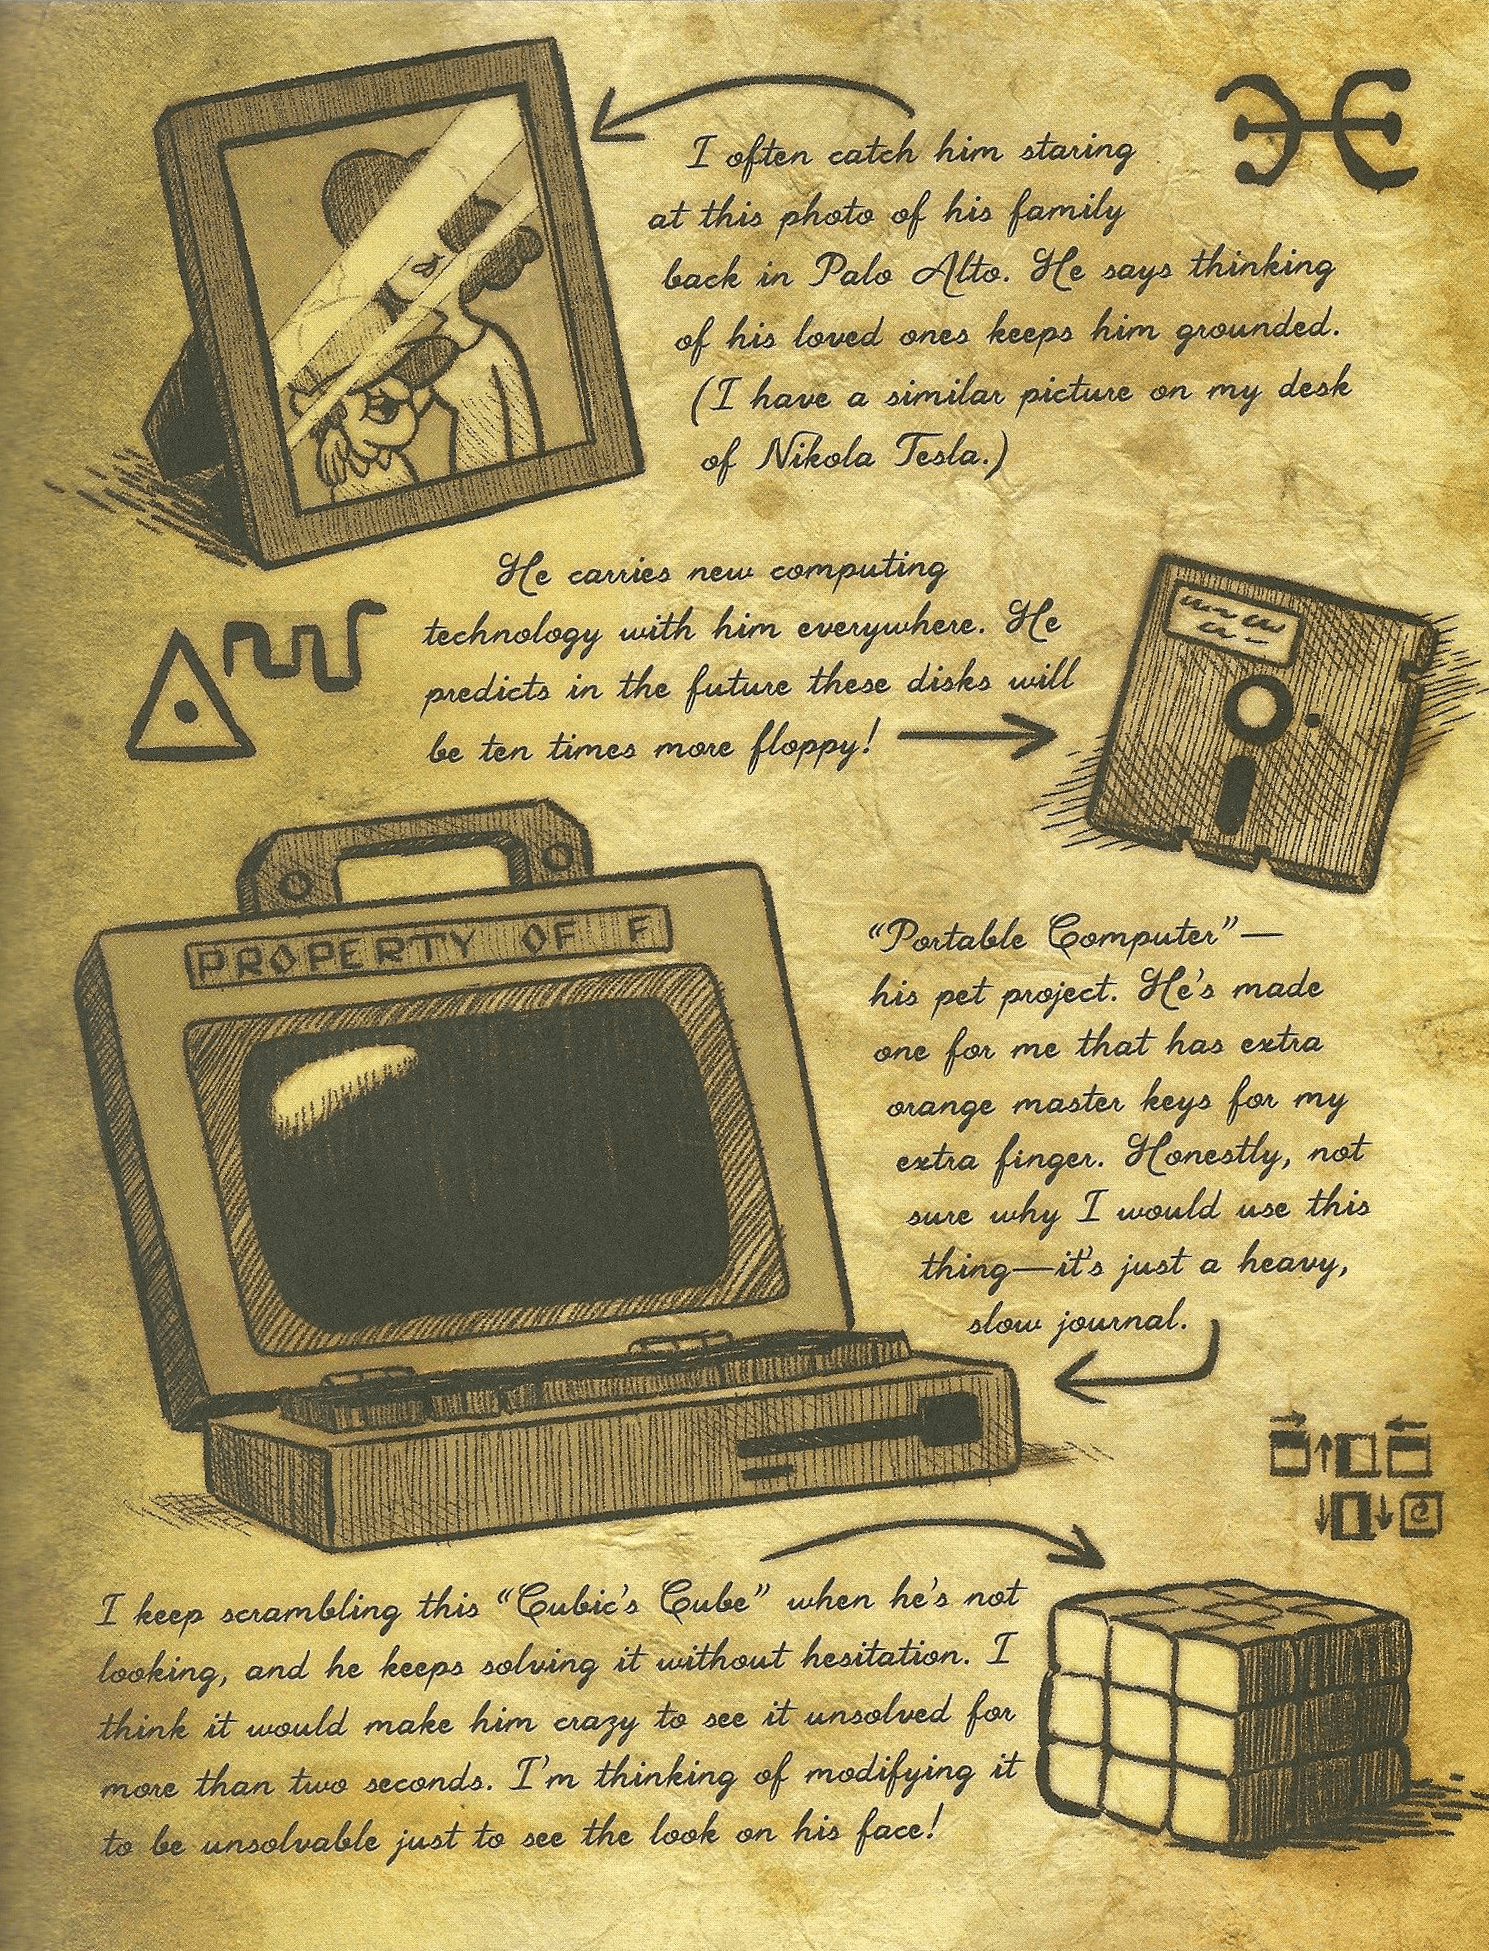 I often catch him staring
at this photo of his family
back in Palo Alto. He says thinking
of his loved ones keeps him grounded.
(I have a similar picture on my desk
of Nikola Tesla.)
He carries new computing
technology with him everywhere. He
predicts in the future these disks will
be ten times more floppy!
PROPERTY OF F
"Portable Computer"—
his pet project. He's made
one for me that has extra
orange master keys for my
extra finger. Honestly, not
sure why I would use this
thing—it's just a heavy,
slow journal.
I keep scrambling this "Cubic's Cube" when he's not
looking, and he keeps solving it without hesitation. I
think it would make him crazy to see it unsolved for
more than two seconds. I'm thinking of modifying it
to be unsolvable just to see the look on his face!